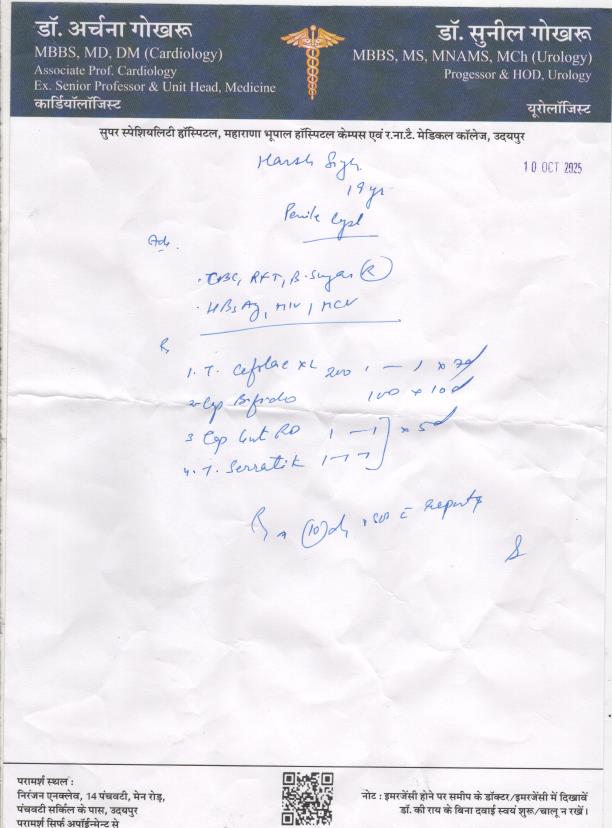 डॉ. अर्चना गोखरू
MBBS, MD, DM (Cardiology)
Associate Prof. Cardiology
Ex. Senior Professor & Unit Head, Medicine
कार्डियॉलॉजिस्ट
डॉ. सुनील गोखरू
MBBS, MS, MNAMS, MCh (Urology)
Progessor & HOD, Urology
यूरोलॉजिस्ट
सुपर स्पेशियलिटी हॉस्पिटल, महाराणा भूपाल हॉस्पिटल केम्पस एवं र.ना.टै. मेडिकल कॉलेज, उदयपुर
10 OCT 2025
Harsh
19 yr
Penile Cyst
Adv.
. CBC, RFT, B. Sugar (R)
. HBsAg, HIV, HCV
1. T. 200 1 - 1 x 7d
2. Cap Bifido 100 x 10d
3 Cap RD 1 - 1 x 5d
4. T. Serratik 1-1-1
(10)d Reports
परामर्श स्थल :
निरंजन एनक्लेव, 14 पंचवटी, मेन रोड़,
पंचवटी सर्किल के पास, उदयपुर
परामर्श सिर्फ अपॉईन्मेन्ट से
नोट : इमरजेंसी होने पर समीप के डॉक्टर/इमरजेंसी में दिखावें
डॉ. की राय के बिना दवाई स्वयं शुरू/चालू न रखें।